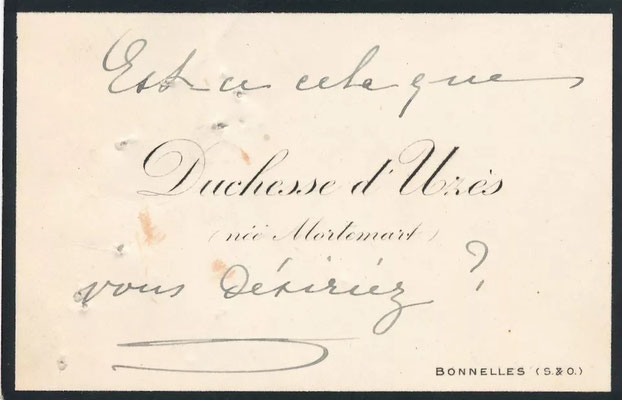 Est-ce cela que
Duchesse d'Uzès
(née Mortemart)
vous désiriez ?
BONNELLES (S.&O.)